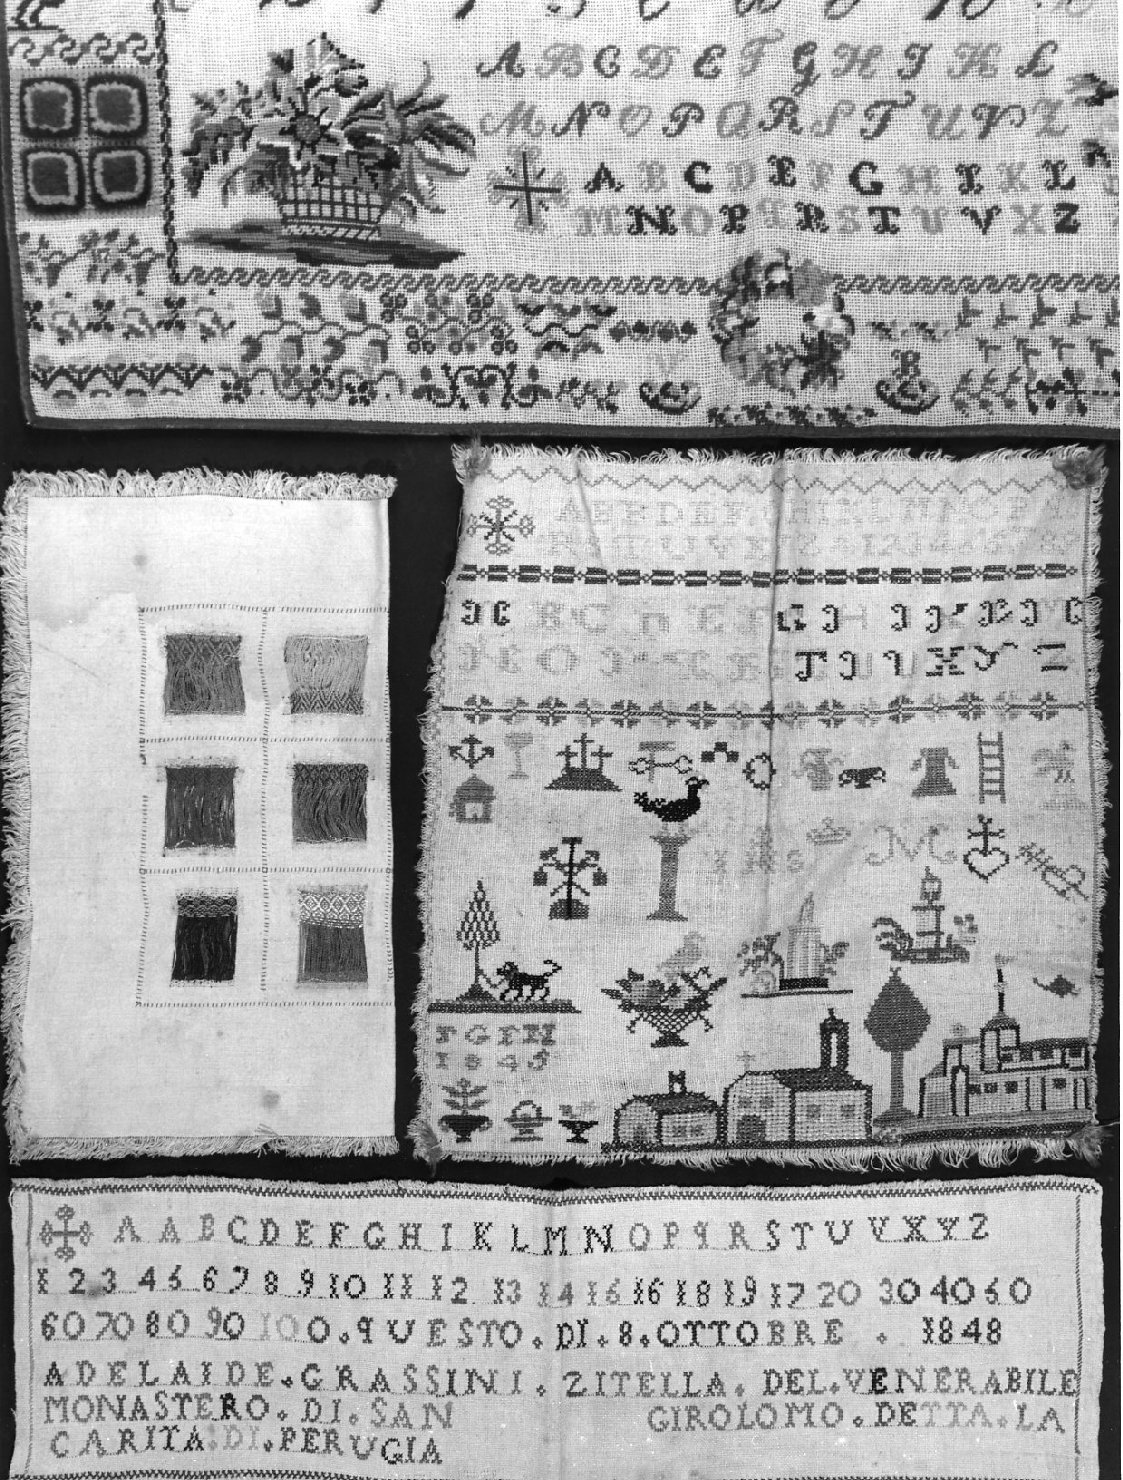 A B C D E F G H I K L
M N O P Q R S T U V Z
A B C D E F G H I K L
M N O P Q R S T U V X Z
R
A B E D E F G H I K L M N O P
R S T U V X Y Z & 1 2 3 4 5 6 7 8 9
G H I
T U X Y Z
IHS
M
1845
A A B C D E F G H I K L M N O P q R S T U V X Y Z
1 2 3 4 5 6 7 8 9 10 11 12 13 14 15 16 18 19 17 20 30 40 50
60 70 80 90 10 0.qUESTO.DI.8.OTTOBRE . 1848
ADELAIDE.GRASSINI.ZITELLA.DEL.VENERABILE
MONASTERO.DI.SAN GIROLOMO.DETTA.LA
CARITA.DI.PERUGIA